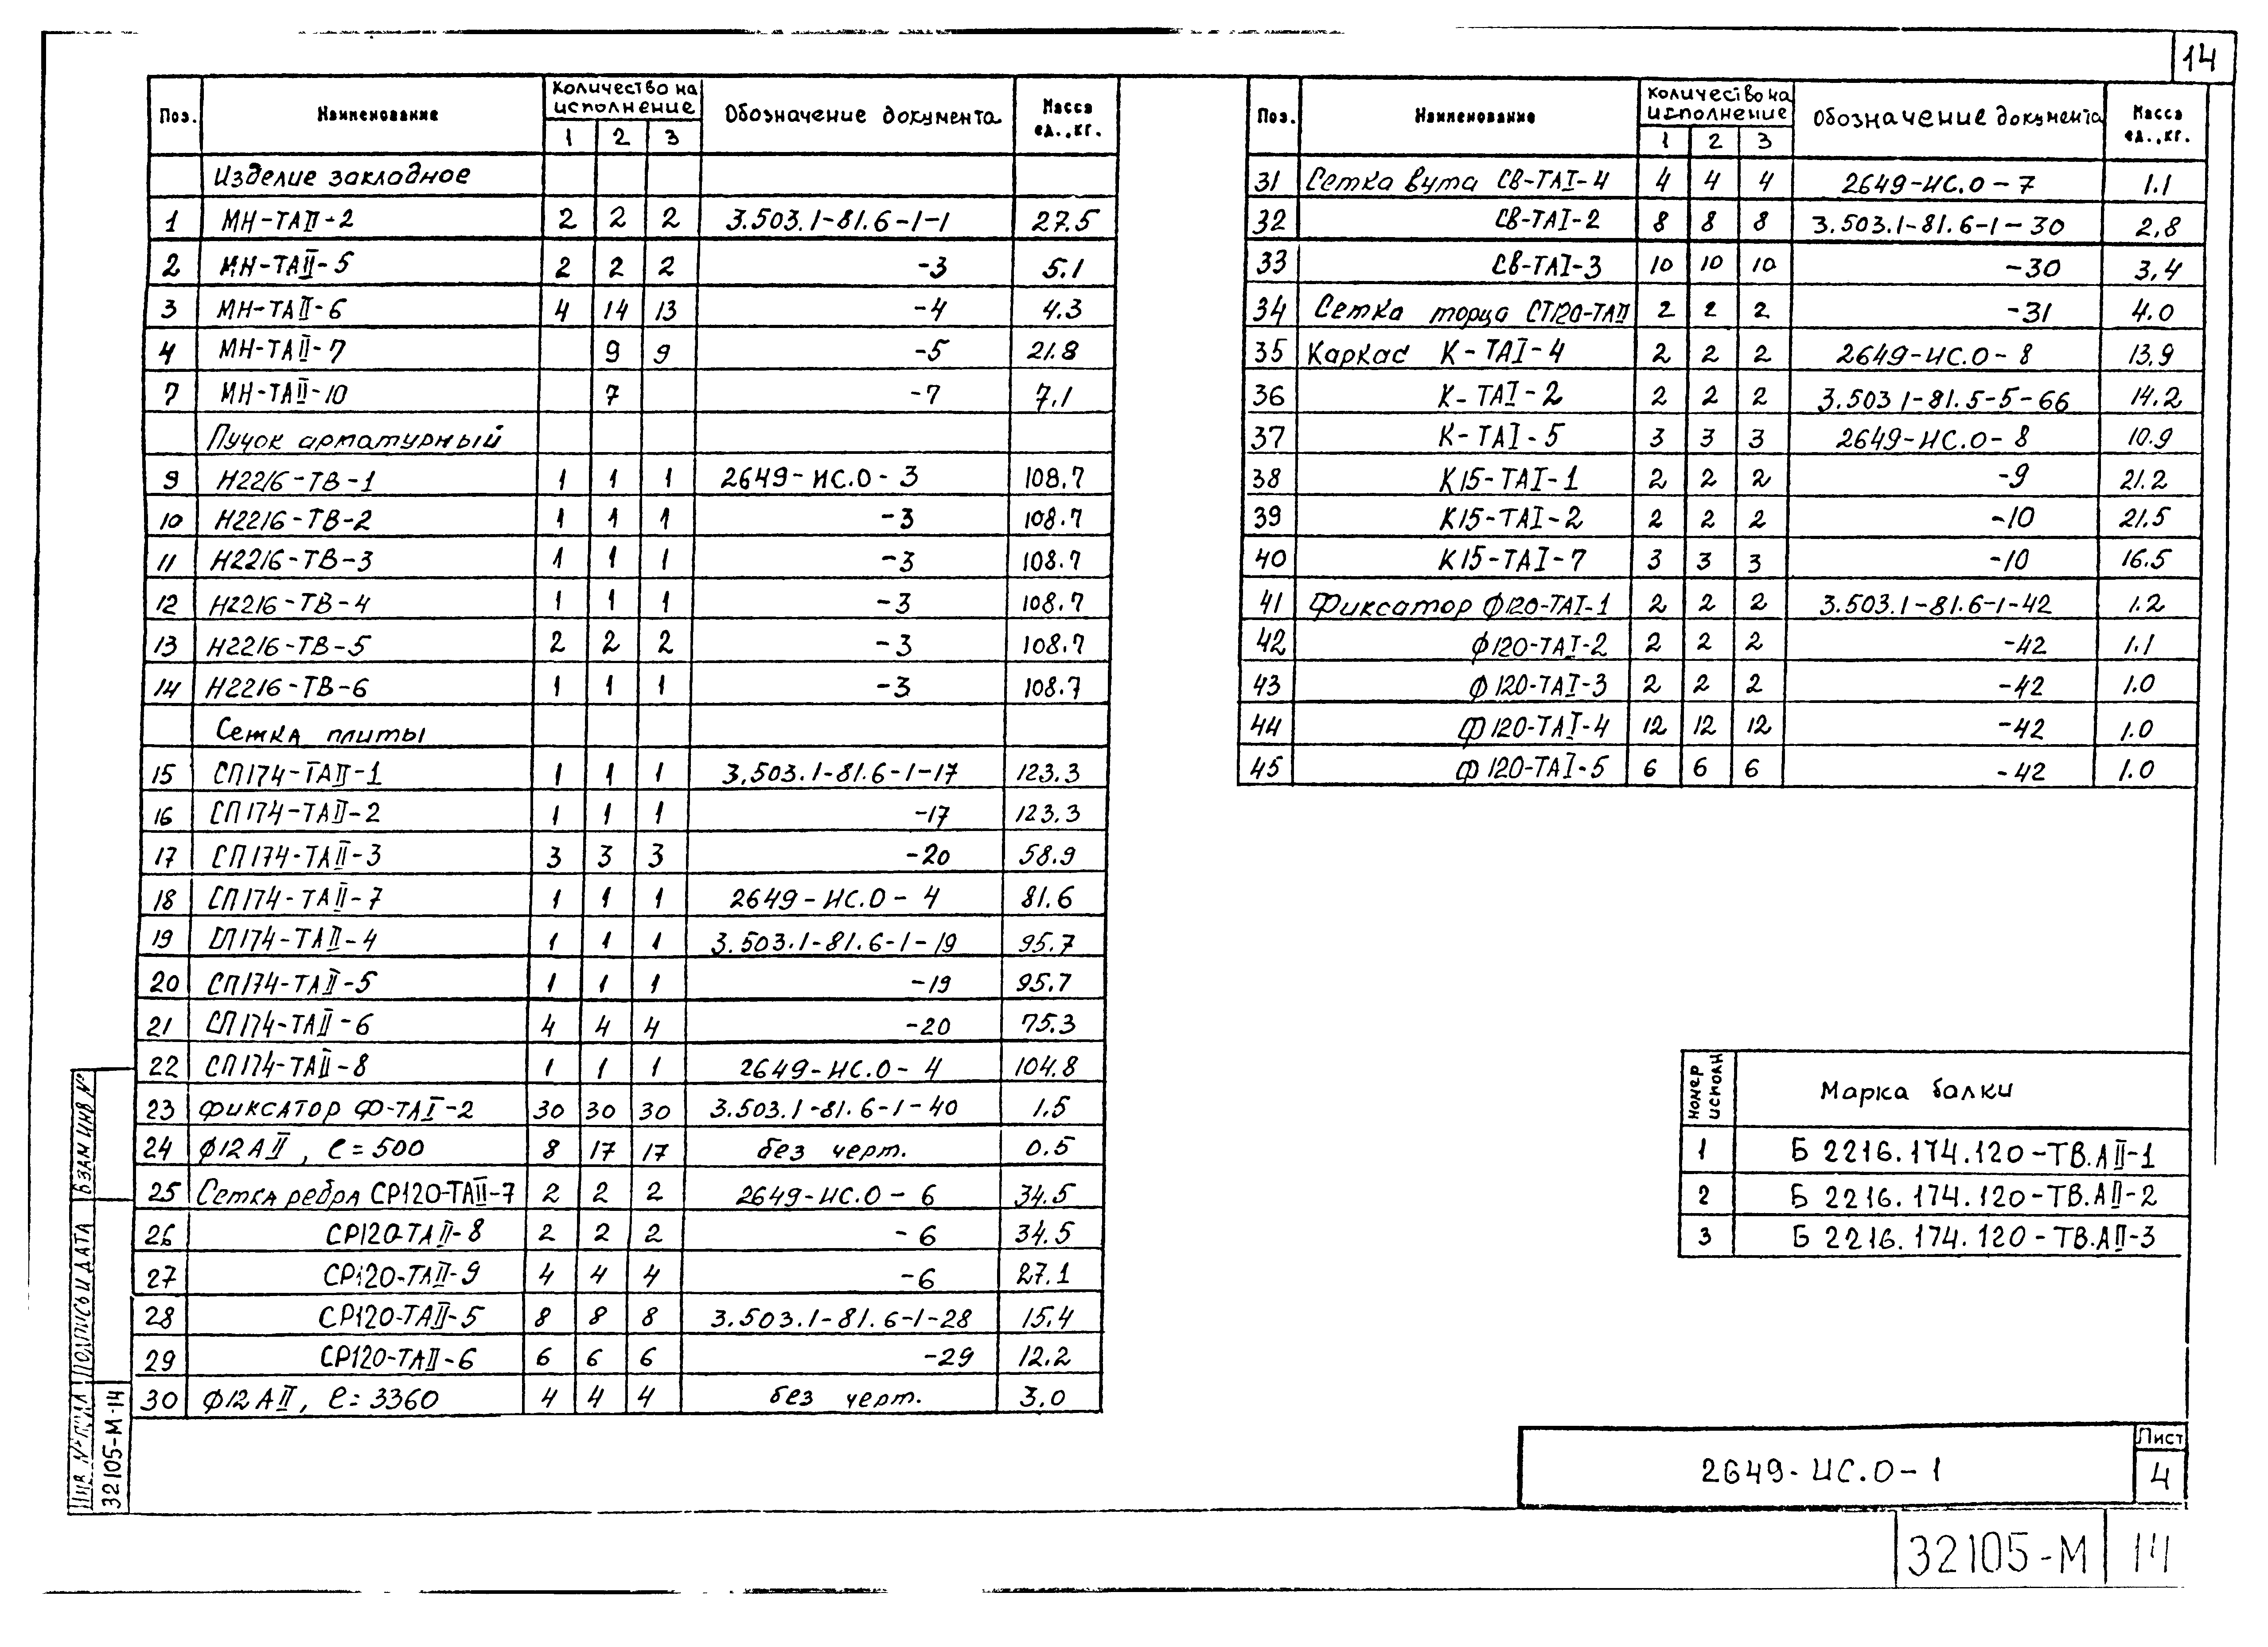 14
Поз. Наименование Количество на исполнение 1 2 3 Обозначение документа Масса ед., кг.
Изделие закладное
1 МН-ТАII-2 2 2 2 3.503.1-81.6-1-1 27.5
2 МН-ТАII-5 2 2 2 -3 5.1
3 МН-ТАII-6 4 14 13 -4 4.3
4 МН-ТАII-7 9 9 -5 21.8
7 МН-ТАII-10 7 -7 7.1
Пучок арматурный
9 Н2216-ТВ-1 1 1 1 2649-ИС.0-3 108.7
10 Н2216-ТВ-2 1 1 1 -3 108.7
11 Н2216-ТВ-3 1 1 1 -3 108.7
12 Н2216-ТВ-4 1 1 1 -3 108.7
13 Н2216-ТВ-5 2 2 2 -3 108.7
14 Н2216-ТВ-6 1 1 1 -3 108.7
Сетка плиты
15 СП174-ТАII-1 1 1 1 3.503.1-81.6-1-17 123.3
16 СП174-ТАII-2 1 1 1 -17 123.3
17 СП174-ТАII-3 3 3 3 -20 58.9
18 СП174-ТАII-7 1 1 1 2649-ИС.0-4 81.6
19 СП174-ТАII-4 1 1 1 3.503.1-81.6-1-19 95.7
20 СП174-ТАII-5 1 1 1 -19 95.7
21 СП174-ТАII-6 4 4 4 -20 75.3
22 СП174-ТАII-8 1 1 1 2649-ИС.0-4 104.8
23 Фиксатор Ф-ТАI-2 30 30 30 3.503.1-81.6-1-40 1.5
24 ф12АII, ℓ=500 8 17 17 без черт. 0.5
25 Сетка ребра СР120-ТАII-7 2 2 2 2649-ИС.0-6 34.5
26 СР120-ТАII-8 2 2 2 -6 34.5
27 СР120-ТАII-9 4 4 4 -6 27.1
28 СР120-ТАII-5 8 8 8 3.503.1-81.6-1-28 15.4
29 СР120-ТАII-6 6 6 6 -29 12.2
30 ф12АII, ℓ=3360 4 4 4 без черт. 3.0
Поз. Наименование Количество на исполнение 1 2 3 Обозначение документа Масса ед., кг.
31 Сетка вута СВ-ТАI-4 4 4 4 2649-ИС.0-7 1.1
32 СВ-ТАI-2 8 8 8 3.503.1-81.6-1-30 2,8
33 СВ-ТАI-3 10 10 10 -30 3,4
34 Сетка торца СТ120-ТАII 2 2 2 -31 4.0
35 Каркас К-ТАI-4 2 2 2 2649-ИС.0-8 13.9
36 К-ТАI-2 2 2 2 3.503 1-81.5-5-66 14.2
37 К-ТАI-5 3 3 3 2649-ИС.0-8 10.9
38 К15-ТАI-1 2 2 2 -9 21.2
39 К15-ТАI-2 2 2 2 -10 21.5
40 К15-ТАI-7 3 3 3 -10 16.5
41 Фиксатор Ф120-ТАI-1 2 2 2 3.503.1-81.6-1-42 1.2
42 Ф120-ТАI-2 2 2 2 -42 1.1
43 Ф120-ТАI-3 2 2 2 -42 1.0
44 Ф120-ТАI-4 12 12 12 -42 1.0
45 Ф120-ТАI-5 6 6 6 -42 1.0
Номер исполн Марка балки
1 Б 2216.174.120-ТВ.АII-1
2 Б 2216.174.120-ТВ.АII-2
3 Б 2216.174.120-ТВ.АII-3
Взам инв №
Подпись и дата
Инв. № подл
32105-М-14
2649-ИС.0-1
Лист
4
32105-М 14